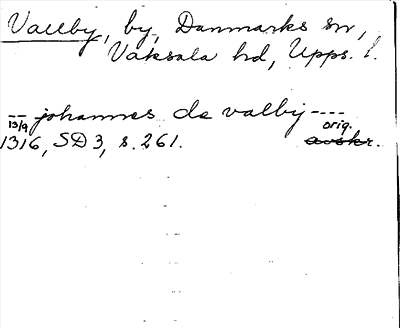 Vallby, by, Danmarks sn,
Vaksala hd, Upps. l.
-- johannes de valby ----
13/9 orig.
1316, SD 3, s. 261. avskr.